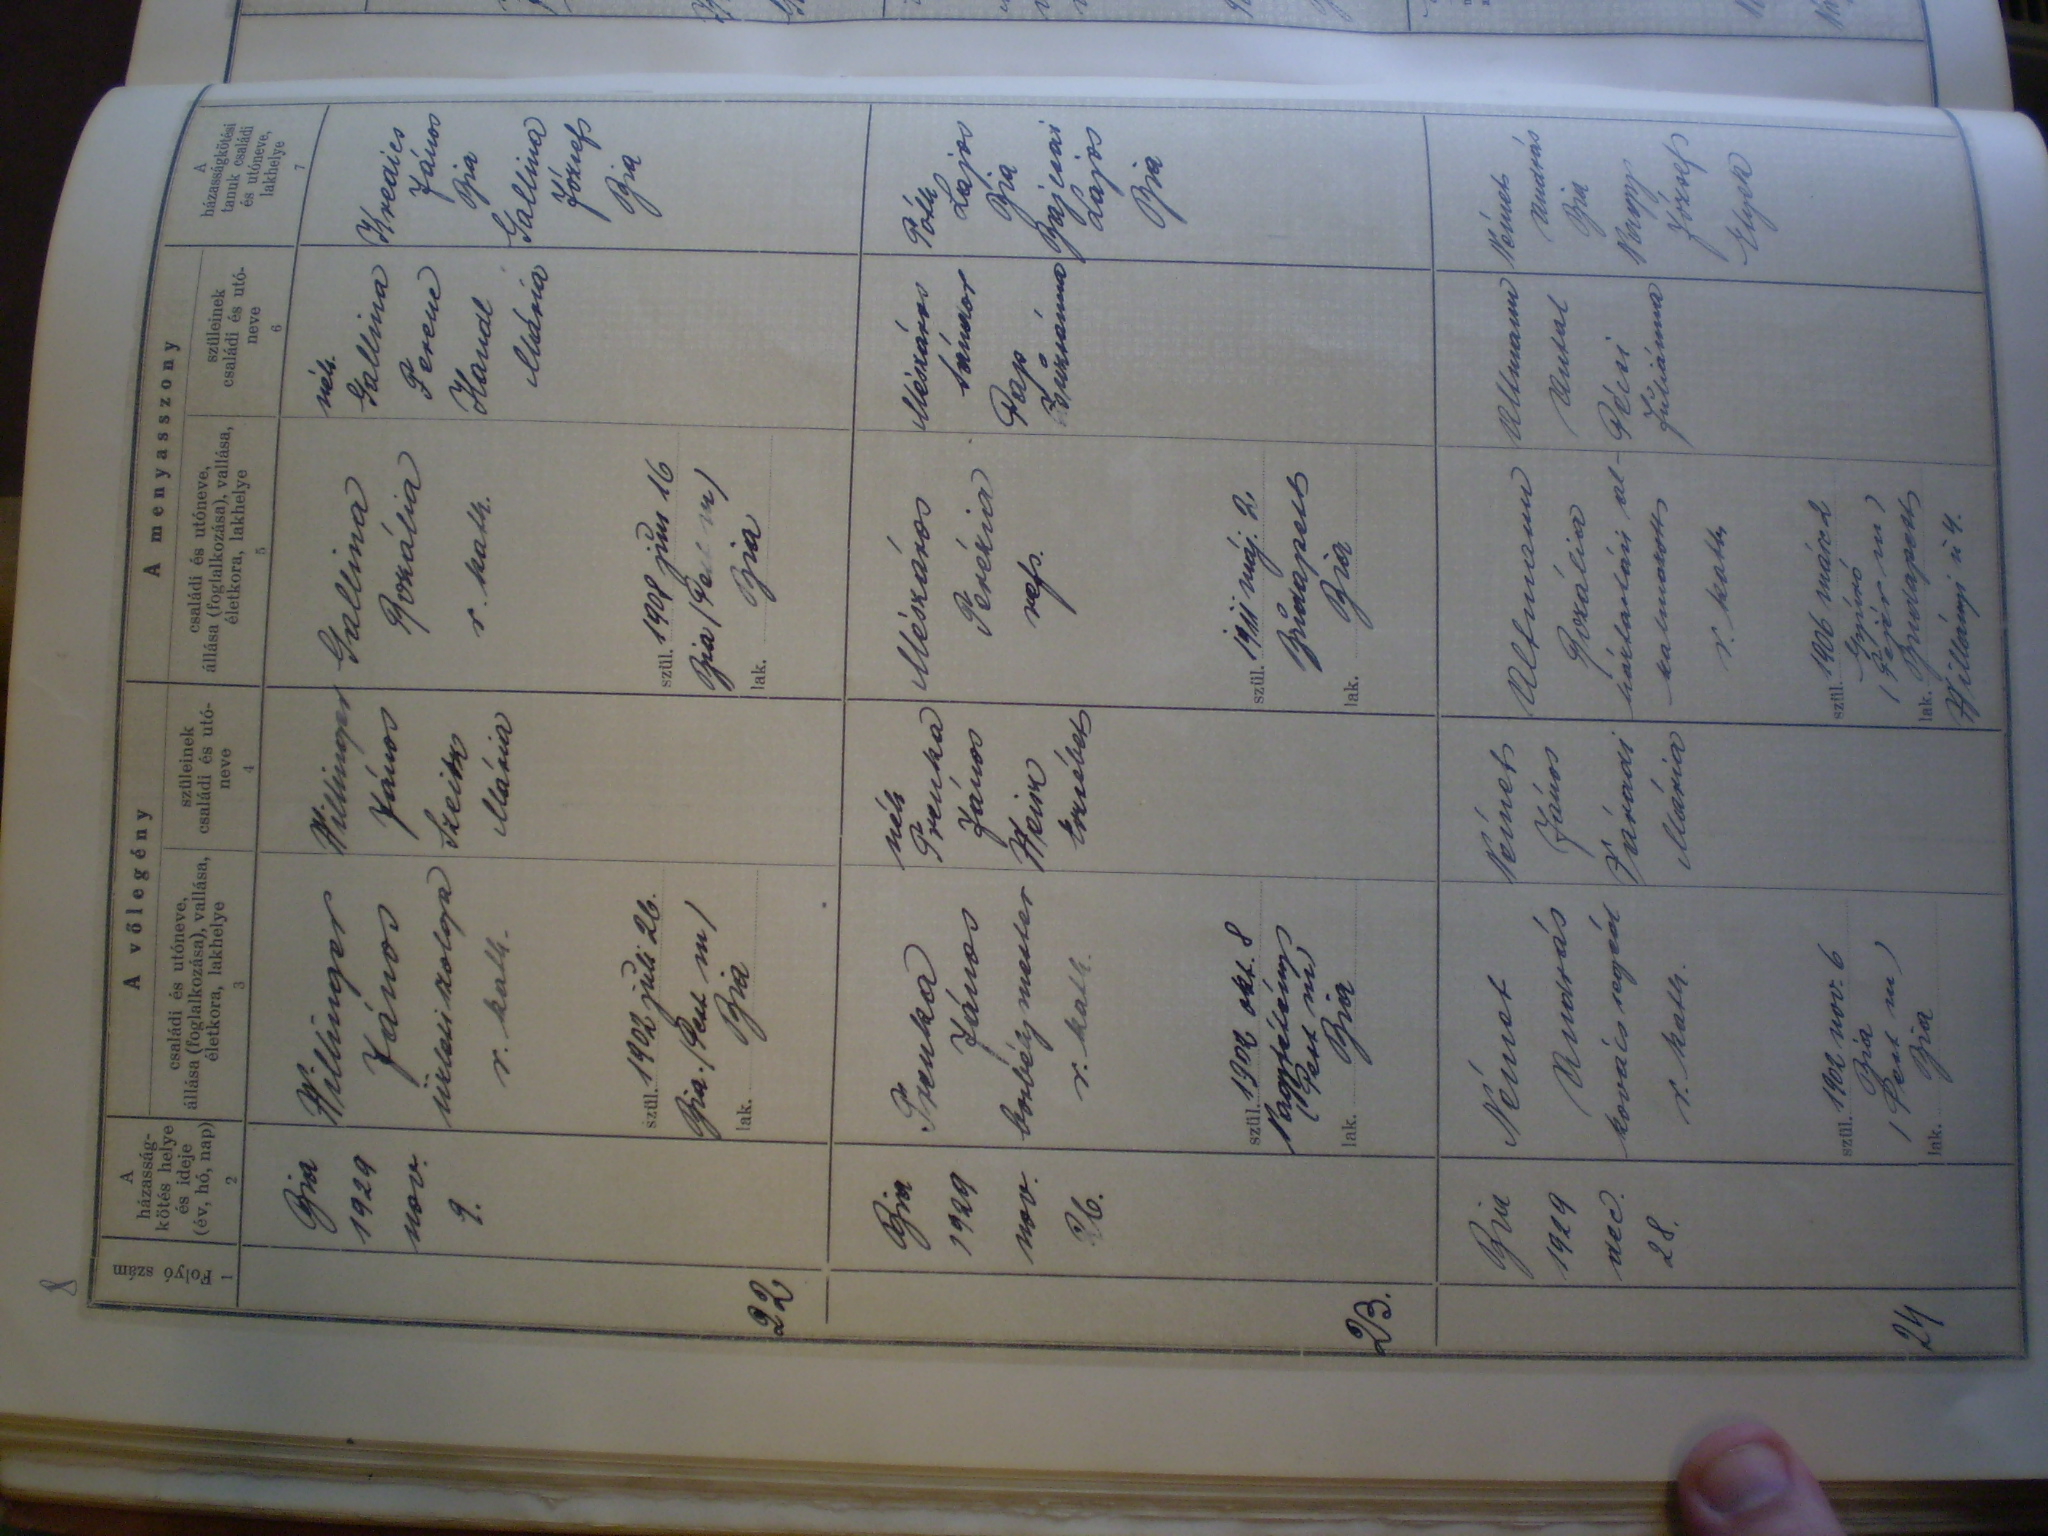 8
A vőlegény
A menyasszony
Folyó szám
1
A
házasság-
kötés helye
és ideje
(év, hó, nap)
2
családi és utóneve,
állása (foglalkozása), vallása,
életkora, lakhelye
3
szüleinek
családi és utó-
neve
4
családi és utóneve,
állása (foglalkozása), vallása,
életkora, lakhelye
5
szüleinek
családi és utó-
neve
6
A
házasságkötési
tanuk családi
és utóneve,
lakhelye
7
22
Bia
1929
nov.
9.
Willinger
János
r. kath.
szül. 1902 juli 26.
Bia. (Pest m)
lak. Bia
Willinger
János
Szeitz
Mária
Gallina
Rozália
r. kath.
szül. 1908 jun 16
Bia (Pest m)
lak. Bia
néh.
Gallina
Ferenc
Handl
Mária
János
Bia
Gallina
József
Bia
23.
Bia
1929
nov.
26.
Trenka
János
borbély mester
r. kath.
szül. 1902 okt. 8
Nagytétény
(Pest m)
lak. Bia
néh
Trenka
János
Weisz
Erzsébet
Mészáros
Terézia
ref.
szül. 1911 máj. 2.
Budapest
lak. Bia
Mészáros
Sándor
Pap
Zsuzsánna
Tóth
Lajos
Bia
Bajcsai
Lajos
Bia
24
Bia
1929
dec.
28.
Német
András
kovács segéd
r. kath.
szül. 1902 nov. 6
Bia
(Pest m)
lak. Bia
Német
János
Váradi
Mária
Altmann
Rozália
háztartási al-
kalmazott
r. kath.
szül. 1906 márc 2
Gyúró
(Fejér m)
lak. Budapest
Villányi u 4.
Altmann
Antal
Pécsi
Juliánna
Német
András
Bia
Nagy
József
Etyek